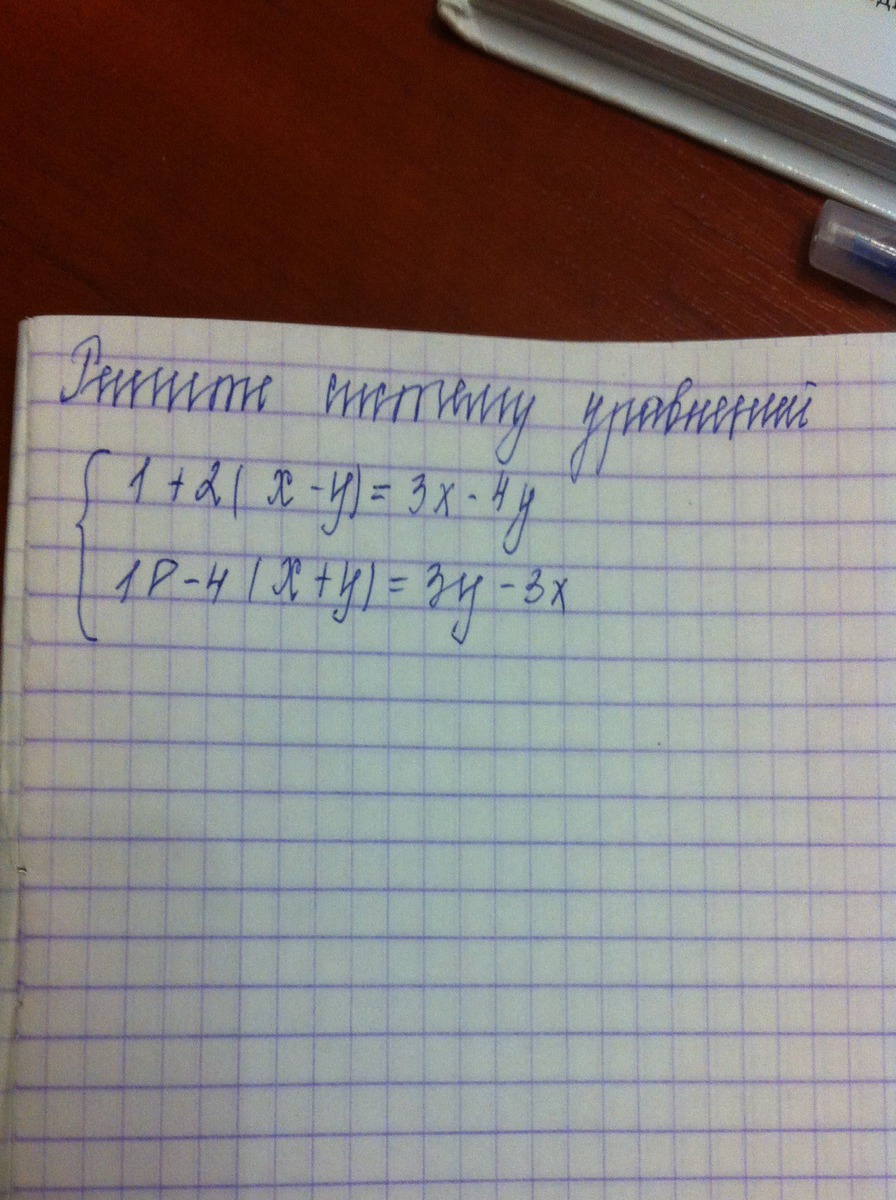 Решите систему уравнений
1 + 2 ( x - y ) = 3x - 4y
10 - 4 ( x + y ) = 3y - 3x